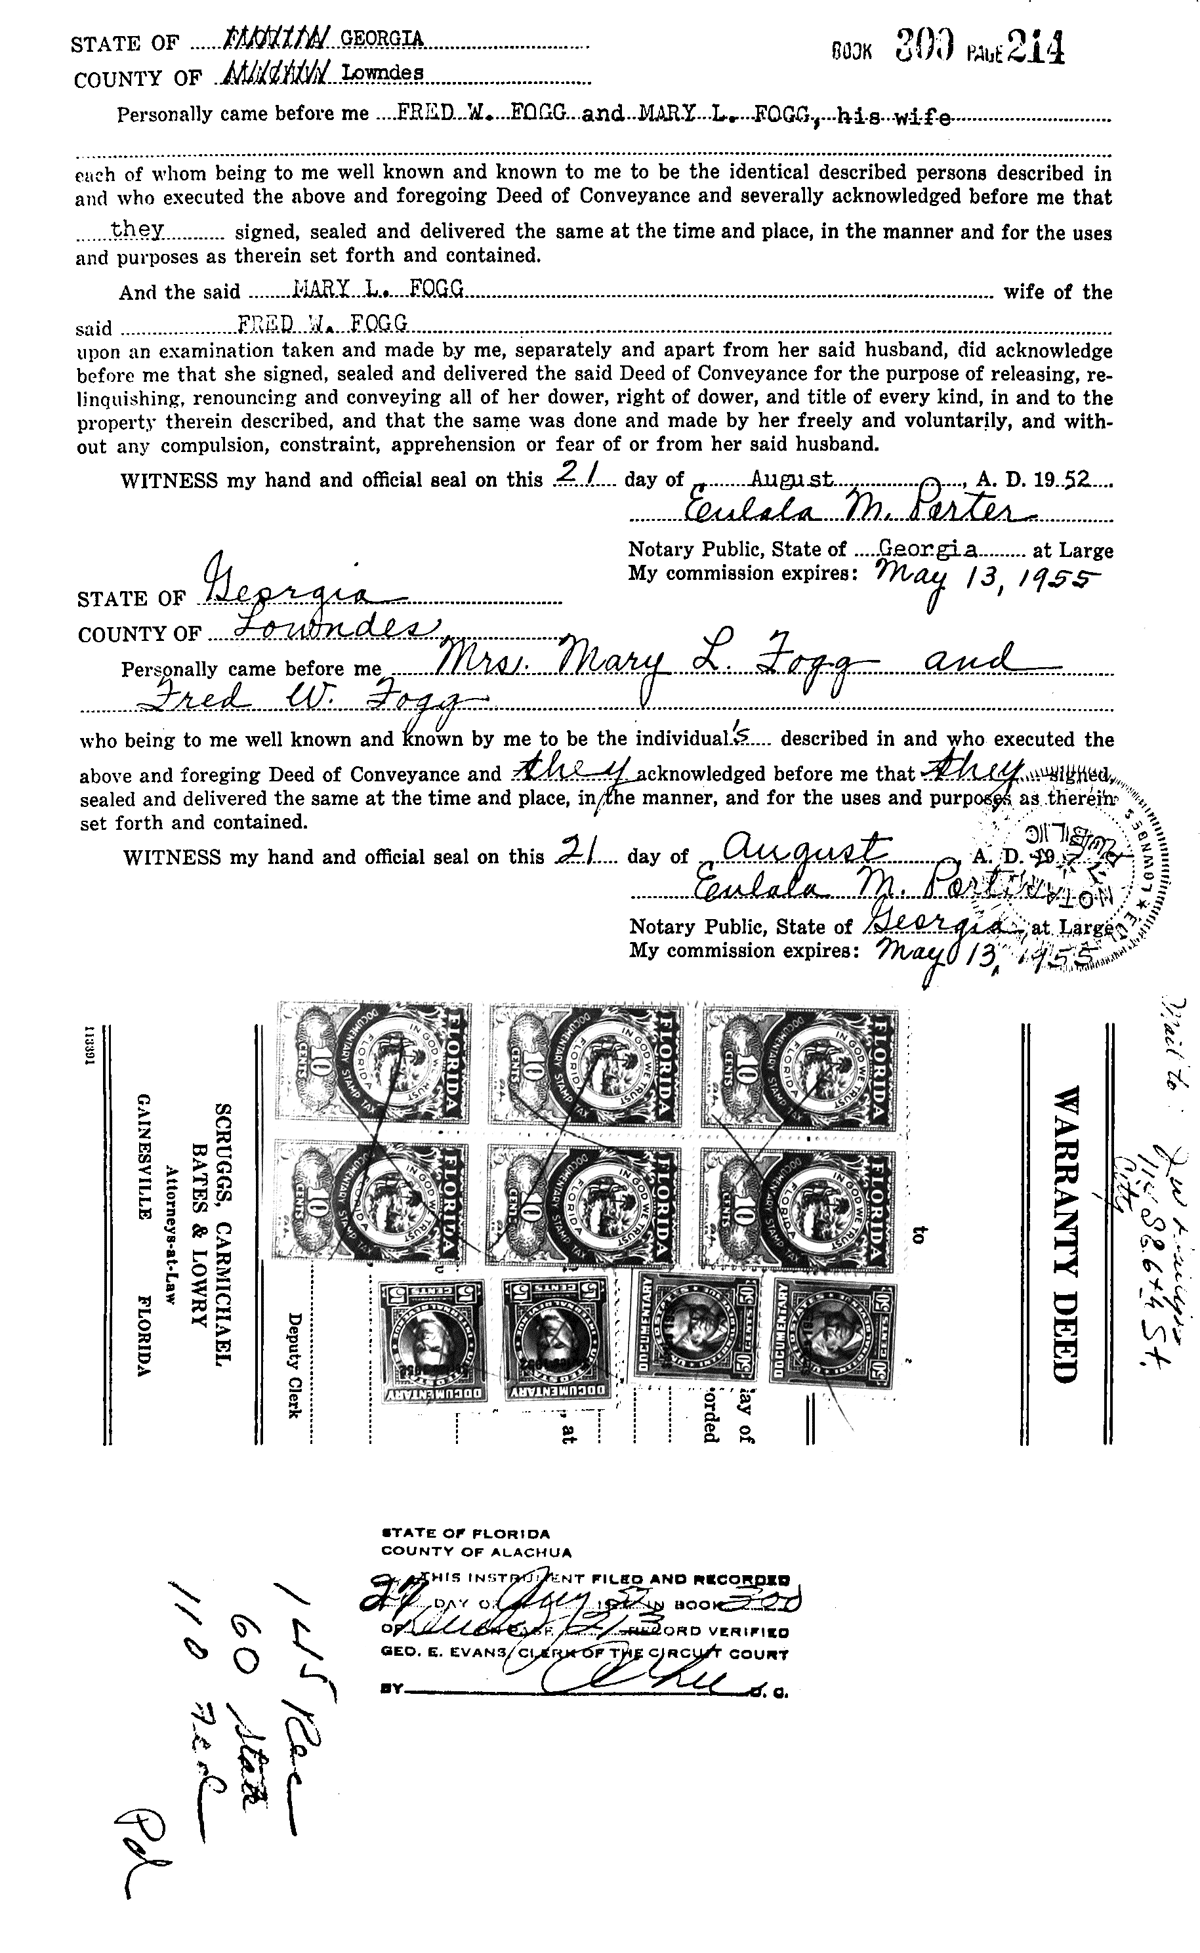 STATE OF GEORGIA
BOOK 300 PAGE 214
COUNTY OF Lowndes
Personally came before me FRED W. FOGG and MARY L. FOGG, his wife
each of whom being to me well known and known to me to be the identical described persons described in
and who executed the above and foregoing Deed of Conveyance and severally acknowledged before me that
they signed, sealed and delivered the same at the time and place, in the manner and for the uses
and purposes as therein set forth and contained.
And the said MARY L. FOGG wife of the
said FRED W. FOGG
upon an examination taken and made by me, separately and apart from her said husband, did acknowledge
before me that she signed, sealed and delivered the said Deed of Conveyance for the purpose of releasing, re-
linquishing, renouncing and conveying all of her dower, right of dower, and title of every kind, in and to the
property therein described, and that the same was done and made by her freely and voluntarily, and with-
out any compulsion, constraint, apprehension or fear of or from her said husband.
WITNESS my hand and official seal on this 21 day of August, A. D. 1952
Eulala M. Porter
Notary Public, State of Georgia at Large
My commission expires: May 13, 1955
STATE OF Georgia
COUNTY OF Lowndes
Personally came before me Mrs. Mary L. Fogg and
Fred W. Fogg
who being to me well known and known by me to be the individual's described in and who executed the
above and foreging Deed of Conveyance and they acknowledged before me that they signed,
sealed and delivered the same at the time and place, in the manner, and for the uses and purposes as therein
set forth and contained.
WITNESS my hand and official seal on this 21 day of August, A. D. 19
Eulala M. Porter
Notary Public, State of Georgia at Large
My commission expires: May 13, 1955
NOTARY PUBLIC
LOWNDES
Mail to
1116 SE 6th St.
City
WARRANTY DEED
to
FLORIDA
IN GOD WE TRUST
FLORIDA
DOCUMENTARY STAMP TAX
10 CENTS
FLORIDA
IN GOD WE TRUST
FLORIDA
DOCUMENTARY STAMP TAX
10 CENTS
FLORIDA
IN GOD WE TRUST
FLORIDA
DOCUMENTARY STAMP TAX
10 CENTS
FLORIDA
IN GOD WE TRUST
FLORIDA
DOCUMENTARY STAMP TAX
10 CENTS
FLORIDA
IN GOD WE TRUST
FLORIDA
DOCUMENTARY STAMP TAX
10 CENTS
FLORIDA
IN GOD WE TRUST
FLORIDA
DOCUMENTARY STAMP TAX
10 CENTS
DOCUMENTARY
50 CENTS
DOCUMENTARY
50 CENTS
DOCUMENTARY
CENTS
DOCUMENTARY
CENTS
day of
orded
, at
Deputy Clerk
SCRUGGS, CARMICHAEL
BATES & LOWRY
Attorneys-at-Law
GAINESVILLE FLORIDA
113391
STATE OF FLORIDA
COUNTY OF ALACHUA
THIS INSTRUMENT FILED AND RECORDED
27 DAY OF Aug 1952 IN BOOK 300
OF PAGE 213 RECORD VERIFIED
GEO. E. EVANS, CLERK OF THE CIRCUIT COURT
BY D. C.
145 Rec
60 State
110 Fed
Pd